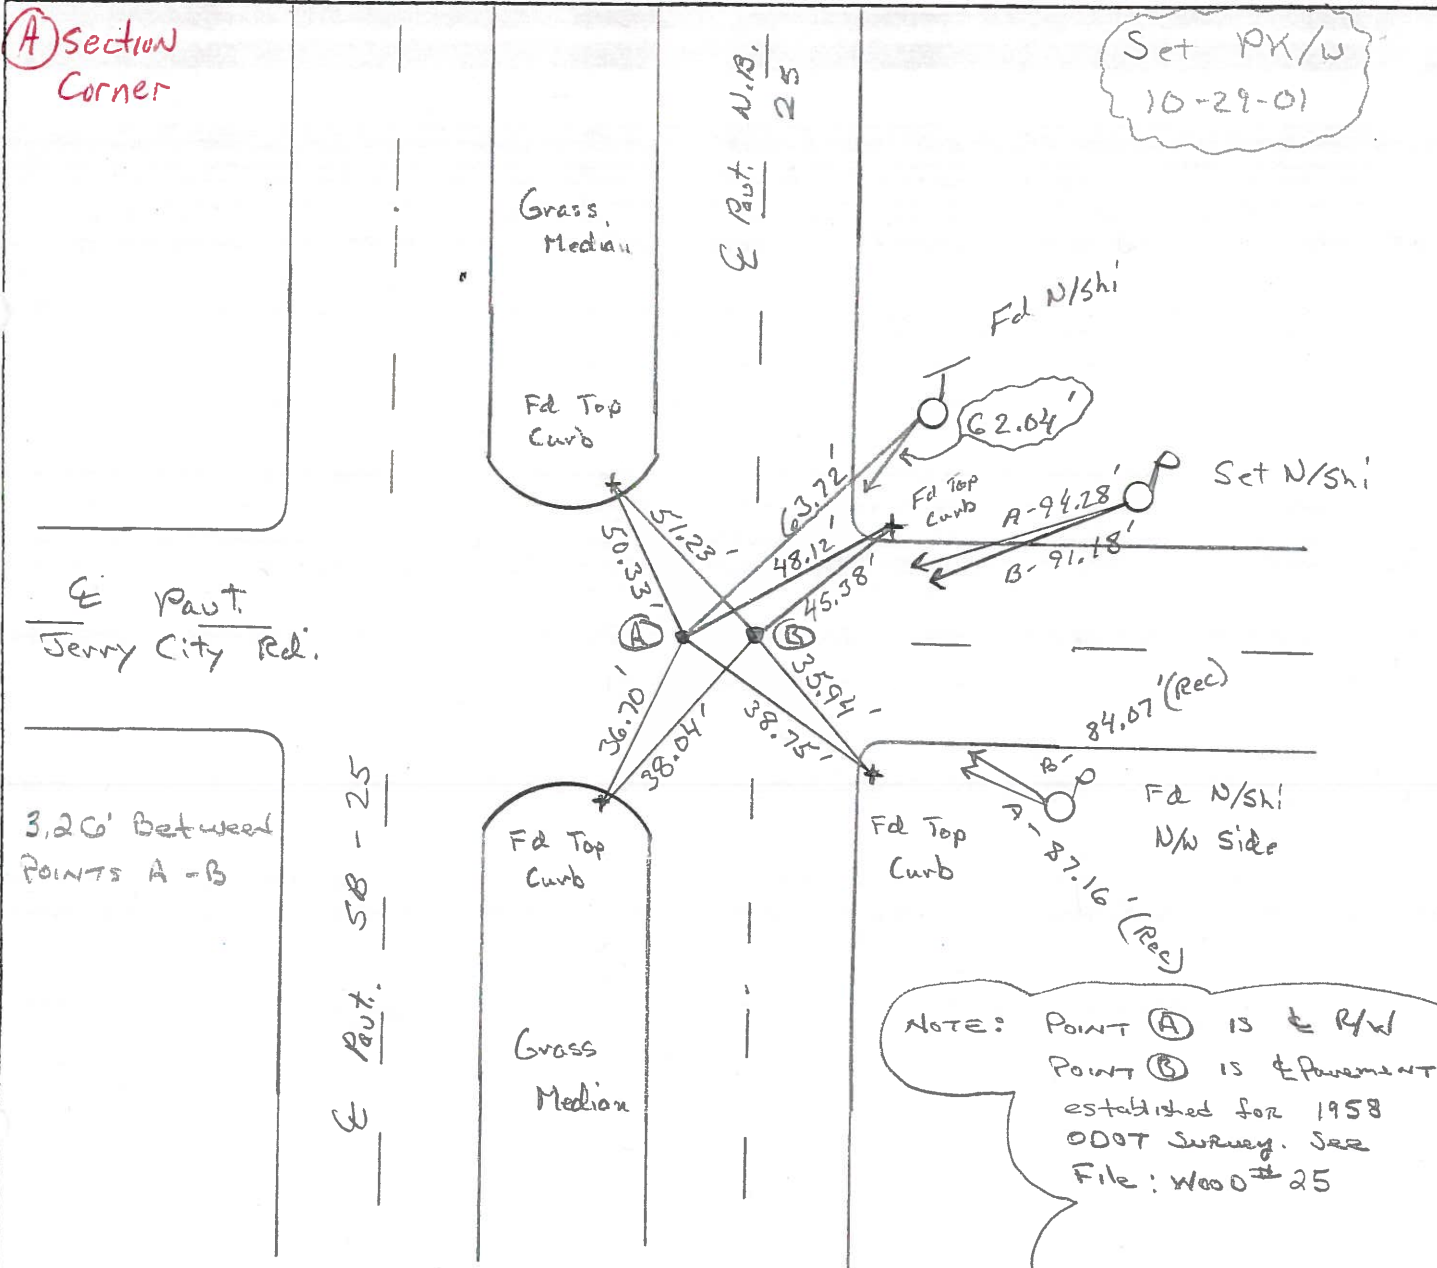 (A) Section
Corner
Set PK/W
10-29-01
℄ Pavt. N.B.
25
Grass
Median
Fd N/shi
Fd Top
Curb
62.04'
63.72'
Fd Top
Curb
Set N/shi
A-94.28'
B-91.18'
51.23'
50.33'
48.12'
45.38'
℄ Pavt.
Jerry City Rd.
(A)
(B)
36.70'
38.04'
38.75'
35.94'
84.07' (Rec)
B-
A-87.16' (Rec)
Fd N/shi
N/W Side
3.26' Between
Points A-B
℄ Pavt. SB-25
Fd Top
Curb
Fd Top
Curb
Grass
Median
NOTE: POINT (A) IS ℄ R/W
POINT (B) IS ℄ Pavement
established for 1958
ODOT Survey. See
File: WOOD #25